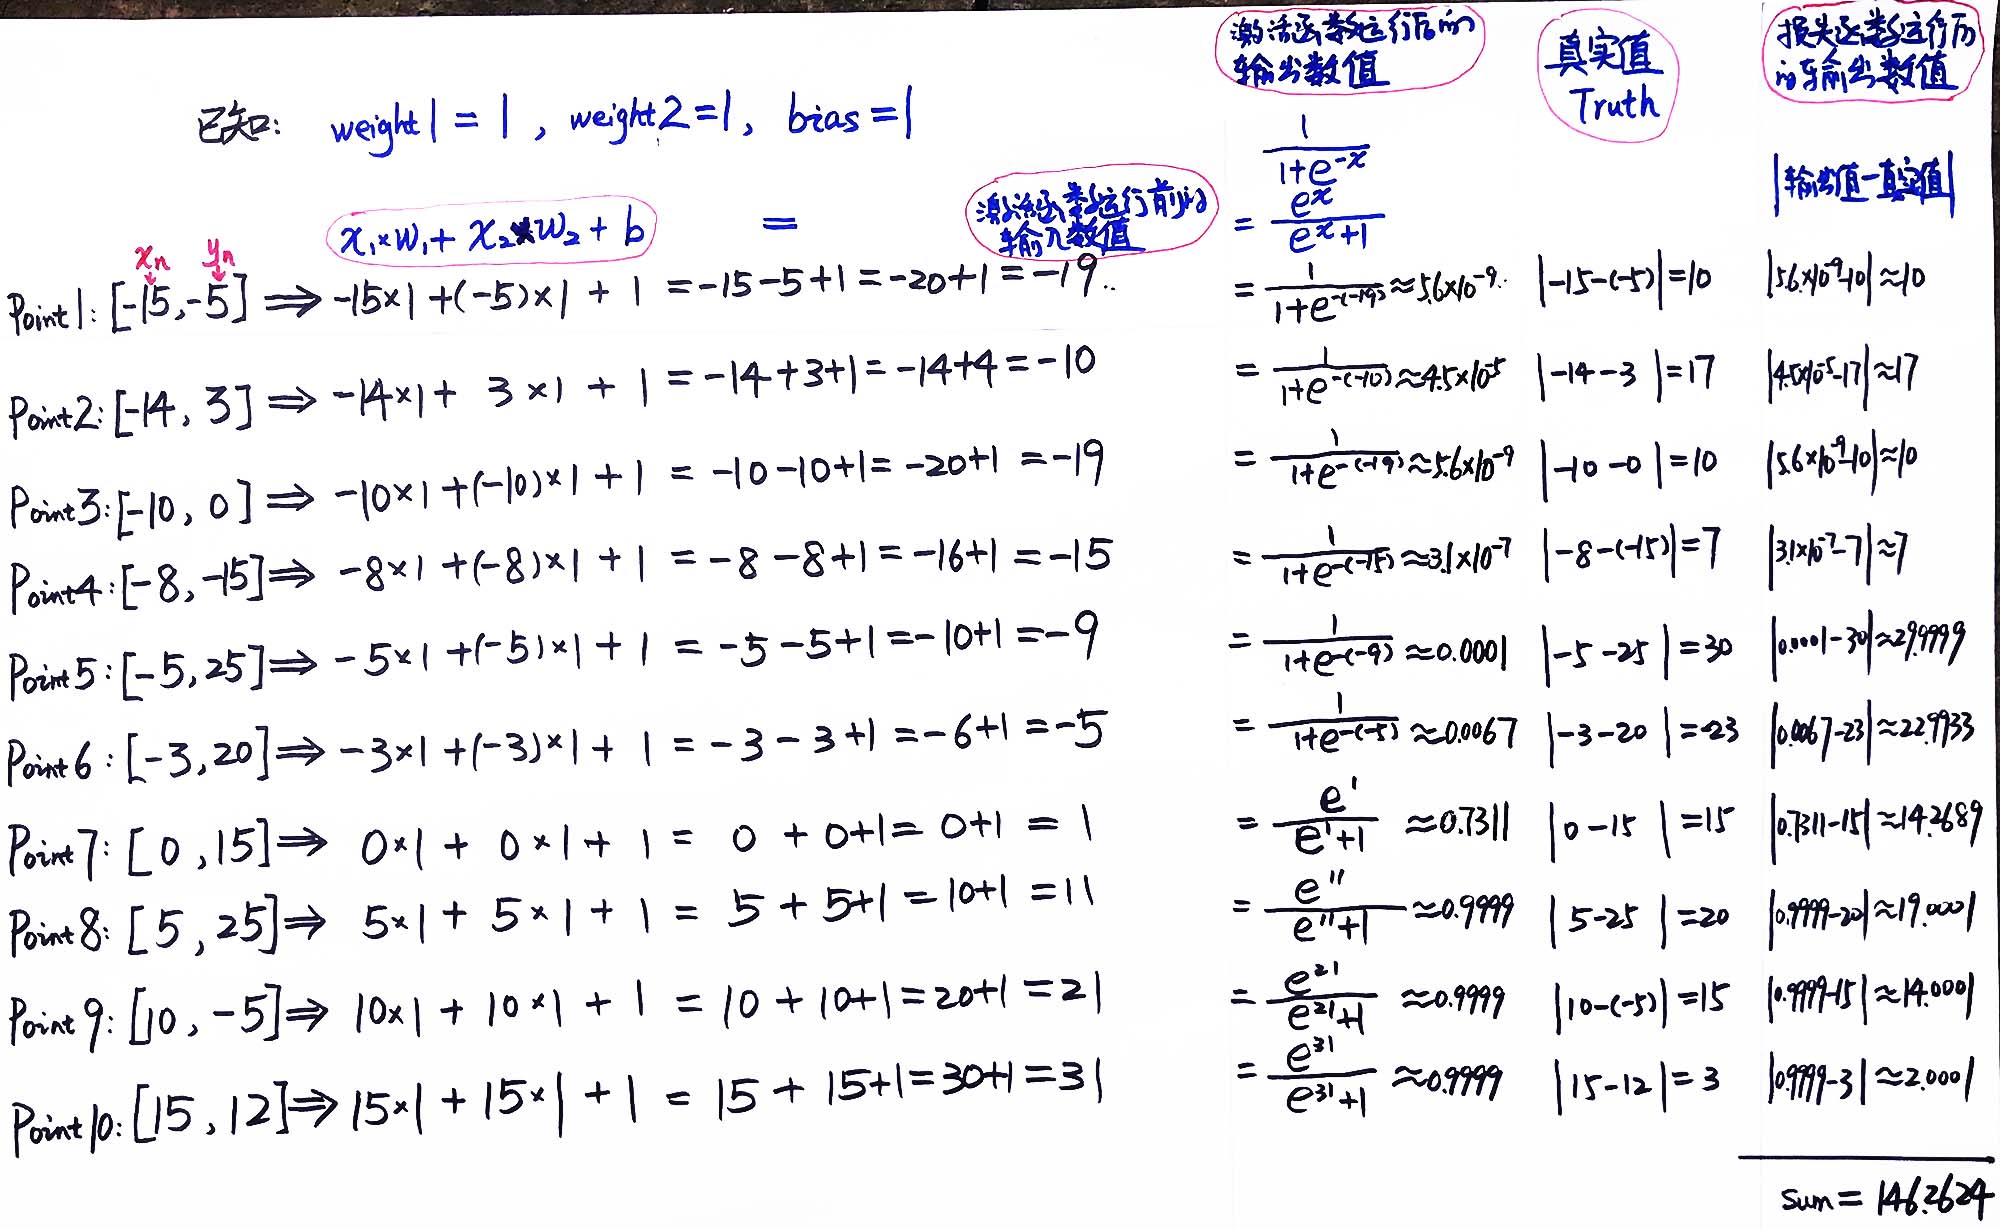 激活函数运行后的
输出数值
真实值
Truth
损失函数运行后
的输出数值
已知: weight1 = 1 , weight2=1, bias=1
1/(1+e^-x)
|输出值-真实值|
x₁×w₁+ x₂×w₂ + b = 激活函数运行前的
输入数值
= e^x/(e^x+1)
xn yn
Point1: [-15,-5] ⇒ -15×1 +(-5)×1 + 1 = -15-5+1 = -20+1 = -19.. = 1/(1+e^-(-19)) ≈5.6×10^-9.. |-15-(-5)|=10 |5.6×10^-9-10|≈10
Point2: [-14, 3] ⇒ -14×1+ 3×1 + 1 = -14+3+1 = -14+4 = -10 = 1/(1+e^-(-10)) ≈4.5×10^-5 |-14-3|=17 |4.5×10^-5-17|≈17
Point3: [-10, 0] ⇒ -10×1 +(-10)×1 + 1 = -10-10+1= -20+1 =-19 = 1/(1+e^-(-19)) ≈5.6×10^-9 |-10-0|=10 |5.6×10^-9-10|≈10
Point4: [-8, -15] ⇒ -8×1 +(-8)×1 + 1 = -8-8+1 = -16+1 = -15 = 1/(1+e^-(-15)) ≈3.1×10^-7 |-8-(-15)|=7 |3.1×10^-7-7|≈7
Point5: [-5, 25] ⇒ -5×1 +(-5)×1 + 1 = -5-5+1 =-10+1 =-9 = 1/(1+e^-(-9)) ≈0.0001 |-5-25|=30 |0.0001-30|≈29.9999
Point6: [-3, 20] ⇒ -3×1 +(-3)×1 + 1 = -3-3+1 = -6+1 =-5 = 1/(1+e^-(-5)) ≈0.0067 |-3-20|=23 |0.0067-23|≈22.9933
Point7: [0, 15] ⇒ 0×1 + 0×1 + 1 = 0 + 0+1= 0+1 = 1 = e^1/(e^1+1) ≈0.7311 |0-15|=15 |0.7311-15|≈14.2689
Point8: [5, 25] ⇒ 5×1 + 5×1 + 1 = 5 + 5+1 = 10+1 =11 = e^11/(e^11+1) ≈0.9999 |5-25|=20 |0.9999-20|≈19.0001
Point9: [10, -5] ⇒ 10×1 + 10×1 + 1 = 10 + 10+1 =20+1 = 21 = e^21/(e^21+1) ≈0.9999 |10-(-5)|=15 |0.9999-15|≈14.0001
Point10: [15, 12] ⇒ 15×1 + 15×1 + 1 = 15 + 15+1 =30+1 = 31 = e^31/(e^31+1) ≈0.9999 |15-12|=3 |0.9999-3|≈2.0001
sum = 146.2624